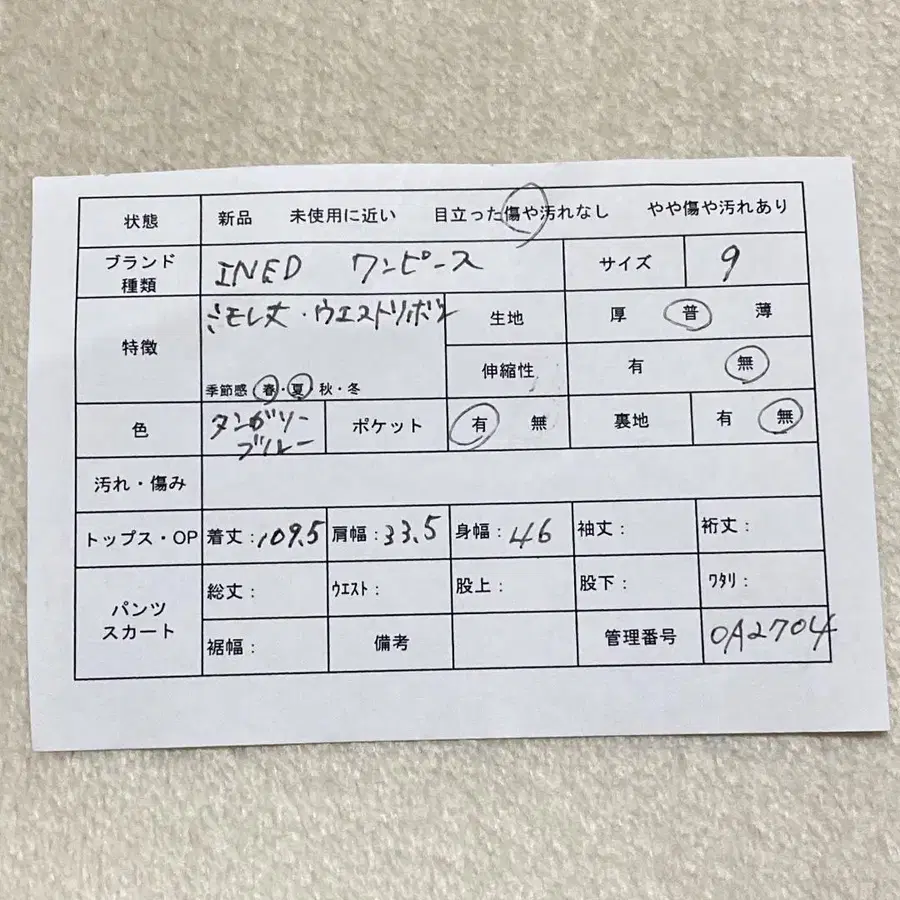 状態 新品 未使用に近い 目立った傷や汚れなし やや傷や汚れあり
ブランド 種類 INED ワンピース サイズ 9
特徴 ミモレ丈・ウエストリボン 生地 厚 普 薄
季節感 春・夏 秋・冬 伸縮性 有 無
色 ダンガリー ブルー ポケット 有 無 裏地 有 無
汚れ・傷み
トップス・OP 着丈：109.5 肩幅：33.5 身幅：46 袖丈： 裄丈：
パンツ スカート 総丈： ｳｴｽﾄ： 股上： 股下： ﾜﾀﾘ：
裾幅： 備考 管理番号 OA2704